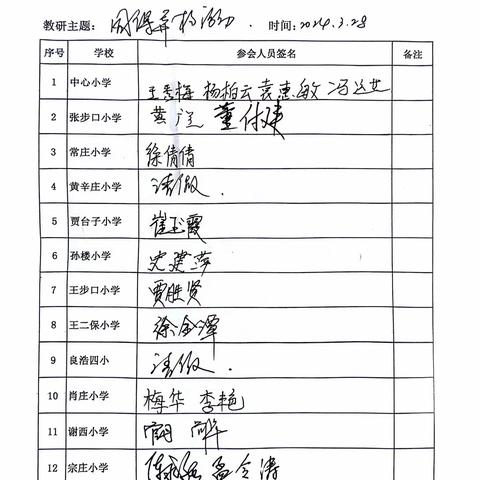 教研主题：同课异构活动. 时间：2024.3.28
序号 学校 参会人员签名 备注
1 中心小学 王秀梅 杨柏云 袁惠敏
2 张步口小学 黄 董付建
3 常庄小学 徐倩倩
4 黄辛庄小学 请假.
5 贾台子小学 崔玉霞
6 孙楼小学 史建萍
7 王步口小学 贾胜贤
8 王二保小学 徐金潭
9 良浩四小 请假.
10 肖庄小学 梅华 李艳
11 谢西小学
12 宗庄小学 孟令涛